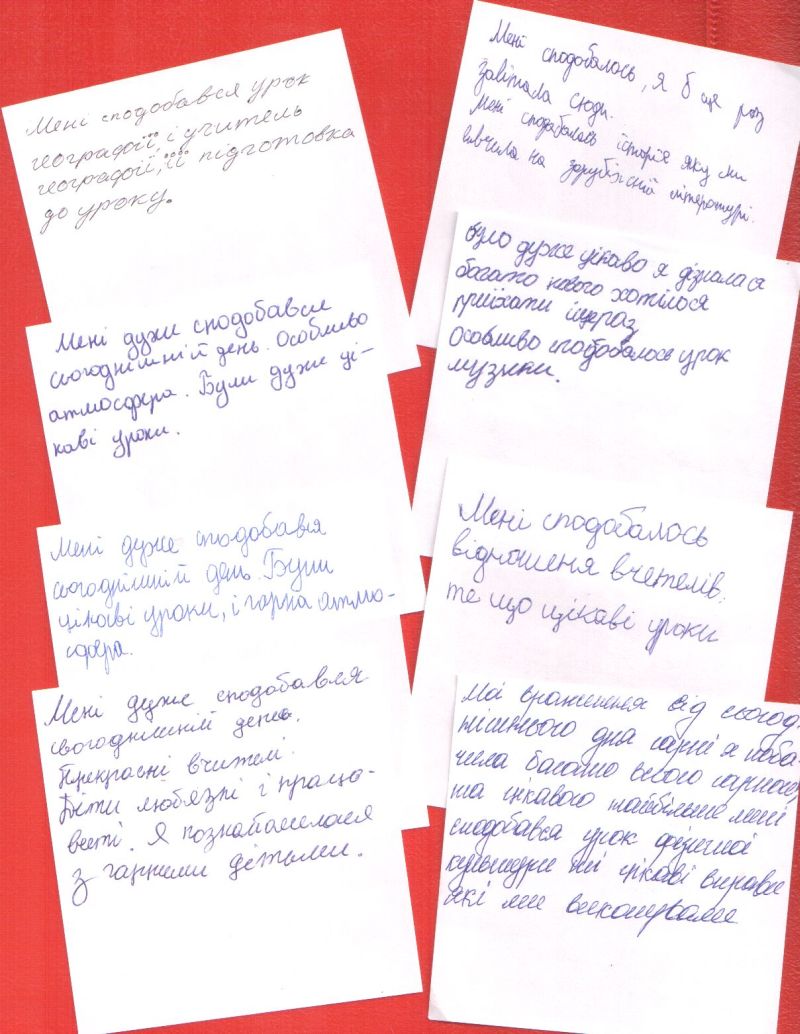 Мені сподобався урок
географії, і учитель
географії, її підготовка
до уроку.
Мені дуже сподобався
сьогоднішній день. Особливо
атмосфера. Були дуже ці-
каві уроки.
Мені дуже сподобався
сьогоднішній день. Були
цікаві уроки, і гарна атмо-
сфера.
Мені дуже сподобався
сьогоднішній день.
Прекрасні вчителі.
Діти люб'язні і працо-
виті. Я познайомилася
з гарними дітьми.
Мені сподобалось, я б ще раз
завітала сюди.
Мені сподобалась історія яку ми
вивчили на зарубіжній літературі.
було дуже цікаво я дізналася
багато нового хотілося
приїхати щераз
Особливо сподобалося урок
музики.
Мені сподобалось
відношеня вчетелів.
те що цікаві уроки
Мої враження від сьогод-
нишнього дня гарні я поба-
чила багато всього гарного
та цікавого найбільше мені
сподобався урок фізичної
культури цікаві вправи
які ми виконували